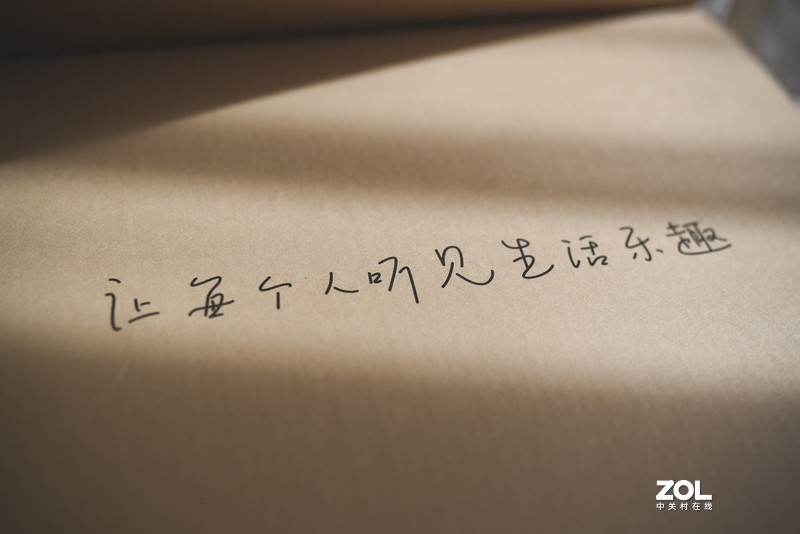 让每个人听见生活乐趣
ZOL
中关村在线